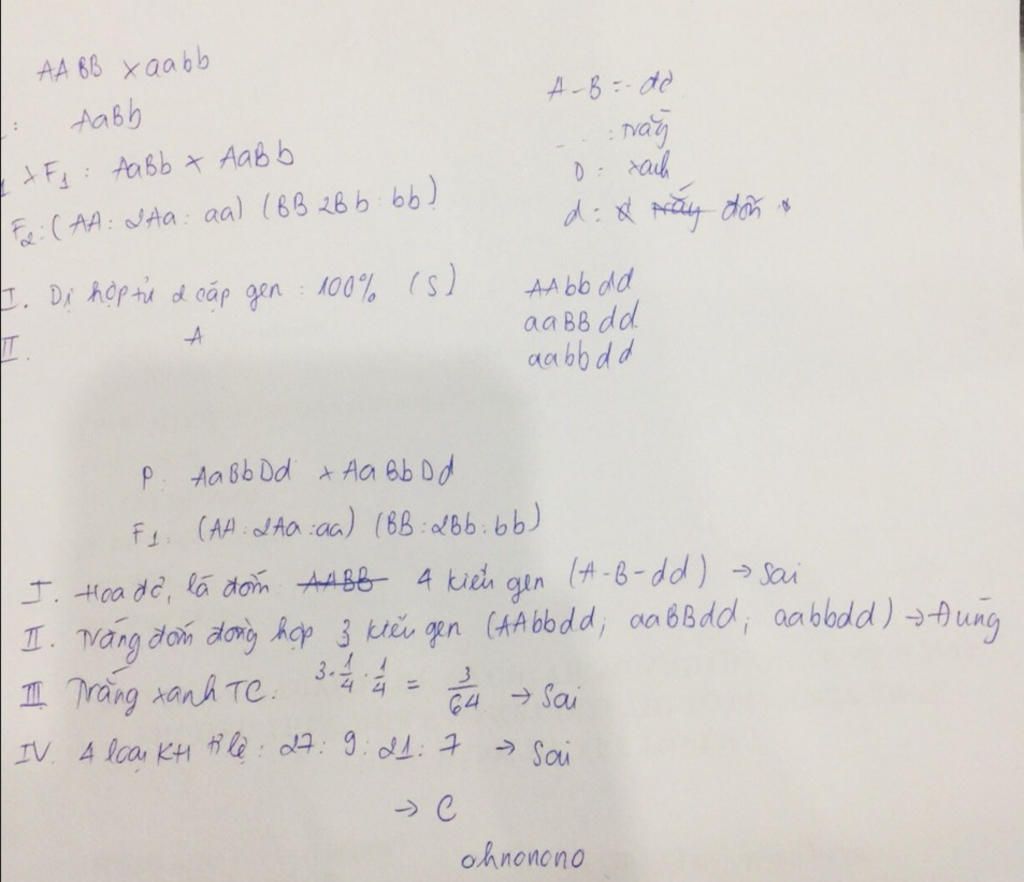 AABB x aabb
: AaBb
1 x F1 : AaBb x AaBb
F2 : (AA : 2Aa : aa) (BB 2Bb : bb)
I. Dị hợp tử 2 cặp gen : 100% (S)
II. A
A-B = - đỏ
: trắng
D : xanh
d : trắng đốm
AAbbdd
aaBBdd
aabbdd
P : AaBbDd x AaBbDd
F1 : (AA : 2Aa : aa) (BB : 2Bb : bb)
I. Hoa đỏ, lá đốm AABB 4 kiểu gen (A-B-dd) → Sai
II. Trắng đốm đồng hợp 3 kiểu gen (AAbbdd; aaBBdd; aabbdd) → Đúng
III Trắng xanh TC : 3 · 1/4 · 1/4 = 3/64 → Sai
IV. 4 loại KH tỉ lệ : 27 : 9 : 21 : 7 → Sai
→ C
ohnonono